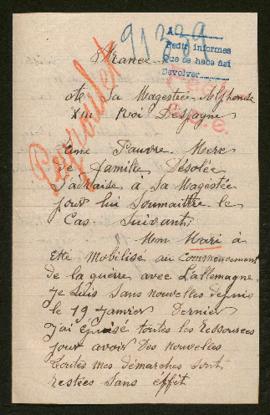 91239
A.
Pedir informes
Que se hace así
Devolver
France
A Sa Magestée Alphonse
XIII Roi D'Espagne
Une Pauvre Mere
de famille Désolée
S'adraise a Sa Magestée
pour lui Soumaittre le
Cas Suivant:
Mon Mari à
Etté Mobilisé au Commencement
de la guerre avec L'allemagne
je Suis Sans nouvelles depuis
le 19 Janvier Dernier
J'ai épuisé toutes les Ressources
pour avoir Des nouvelles
toutes mes démarches Sont
restées Sans éffet